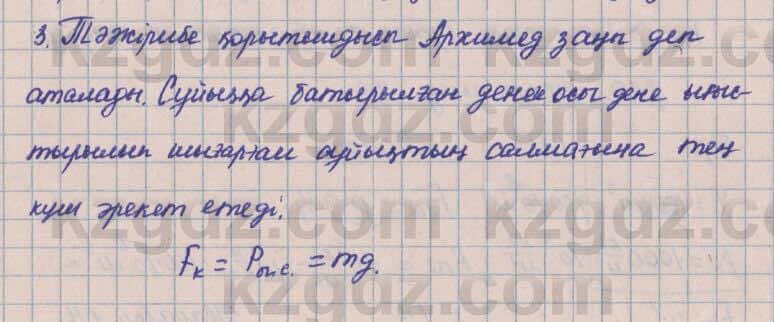 3. Тәжірибе қорытындысы Архимед заңы деп
аталады. Сұйыққа батырылған денеге осы дене ығыс-
тырылып шығарған сұйықтың салмағына тең
күш әрекет етеді.
Fк = Pығ.с. = mg.
kzgdz.com